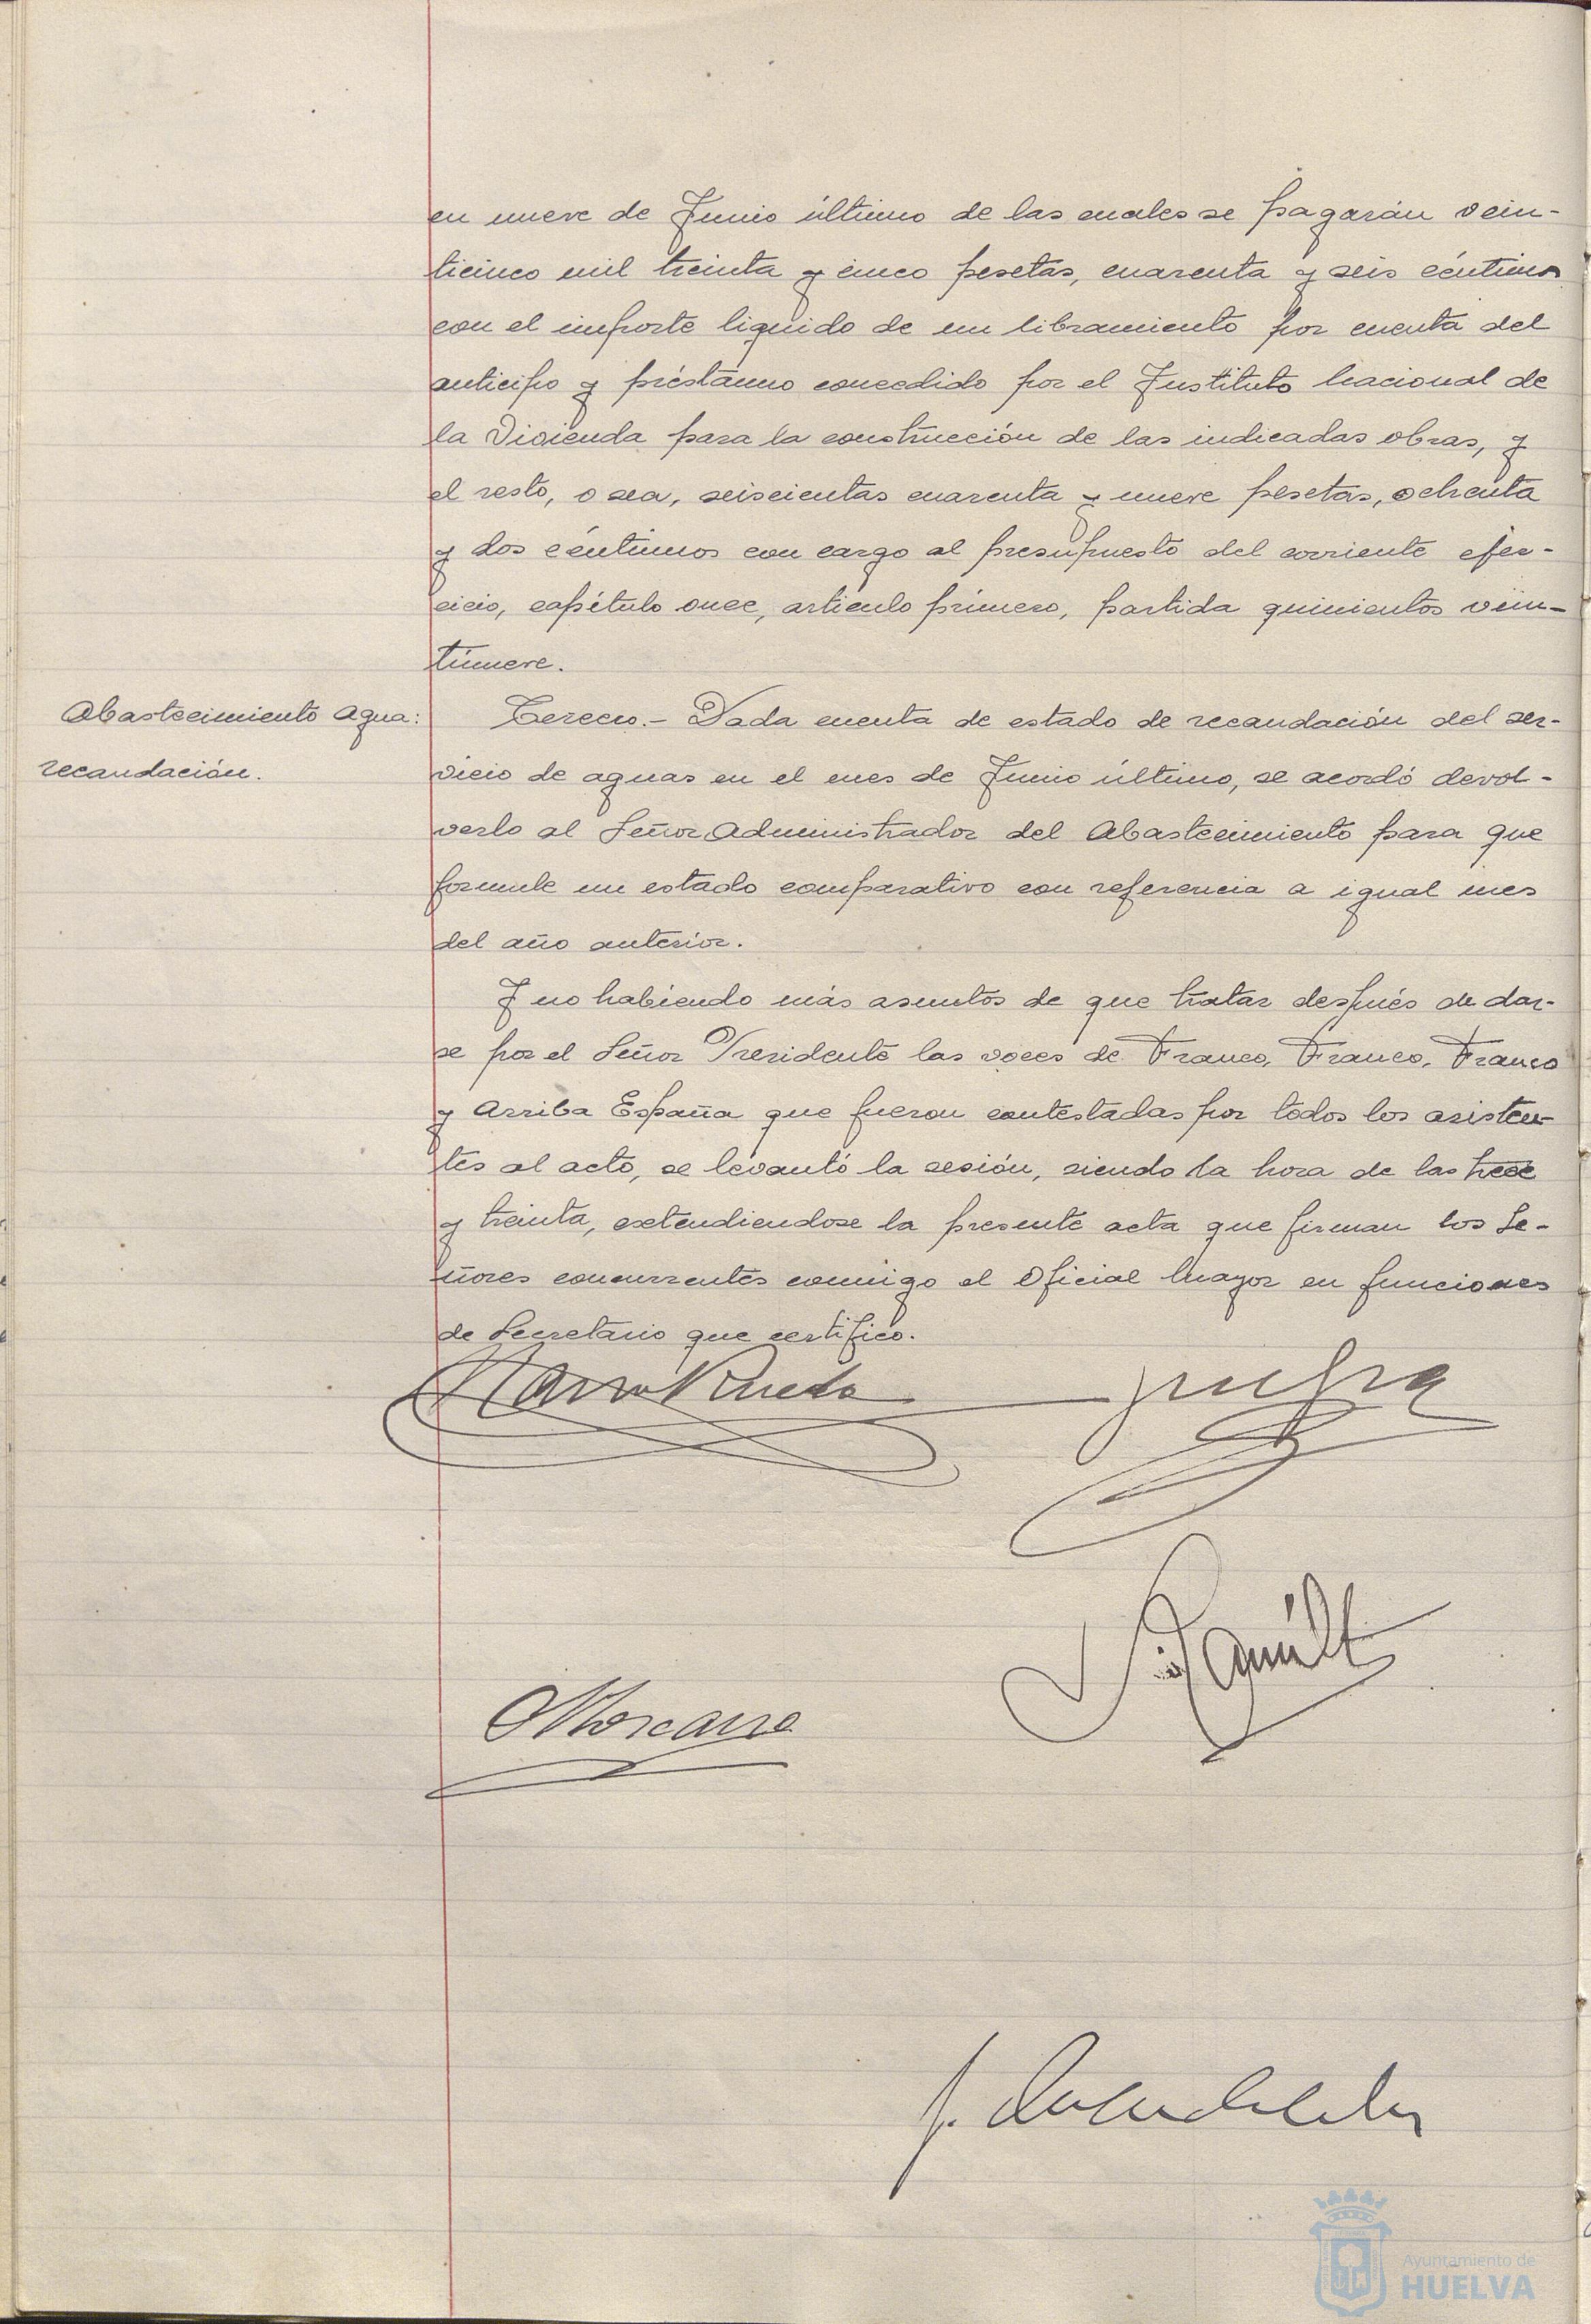 en nueve de Junio último de las cuales se pagarán vein-
ticinco mil treinta y cinco pesetas, cuarenta y seis céntimos
con el importe liquido de un libramiento por cuenta del
anticipo y préstamo concedido por el Instituto Nacional de
la Vivienda para la construcción de las indicadas obras, y
el resto, o sea, seiscientas cuarenta y nueve pesetas, ochenta
y dos céntimos con cargo al presupuesto del corriente ejer-
cicio, capítulo once, artículo primero, partida quinientos vein-
tinueve.
Abastecimiento Agua:
recaudación.
Tercero.- Dada cuenta de estado de recaudación del ser-
vicio de aguas en el mes de Junio último, se acordó devol-
verlo al Señor Administrador del Abastecimiento para que
formule un estado comparativo con referencia a igual mes
del año anterior.
Y no habiendo más asuntos de que tratar después de dar-
se por el Señor Presidente las voces de Franco, Franco, Franco
y Arriba España que fueron contestadas por todos los asisten-
tes al acto, se levantó la sesión, siendo la hora de las trece
y treinta, extendiendose la presente acta que firman los Se-
ñores concurrentes conmigo el Oficial Mayor en funciones
de Secretario que certifico.
Ayuntamiento de
HUELVA